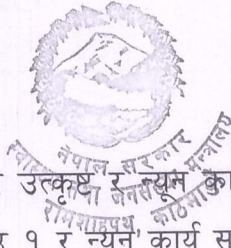 नेपाल सरकार
स्वास्थ्य तथा जनसंख्या मन्त्रालय
रामशाहपथ काठमाडौं
उत्कृष्ट र न्यून
र १ र न्यून कार्य स